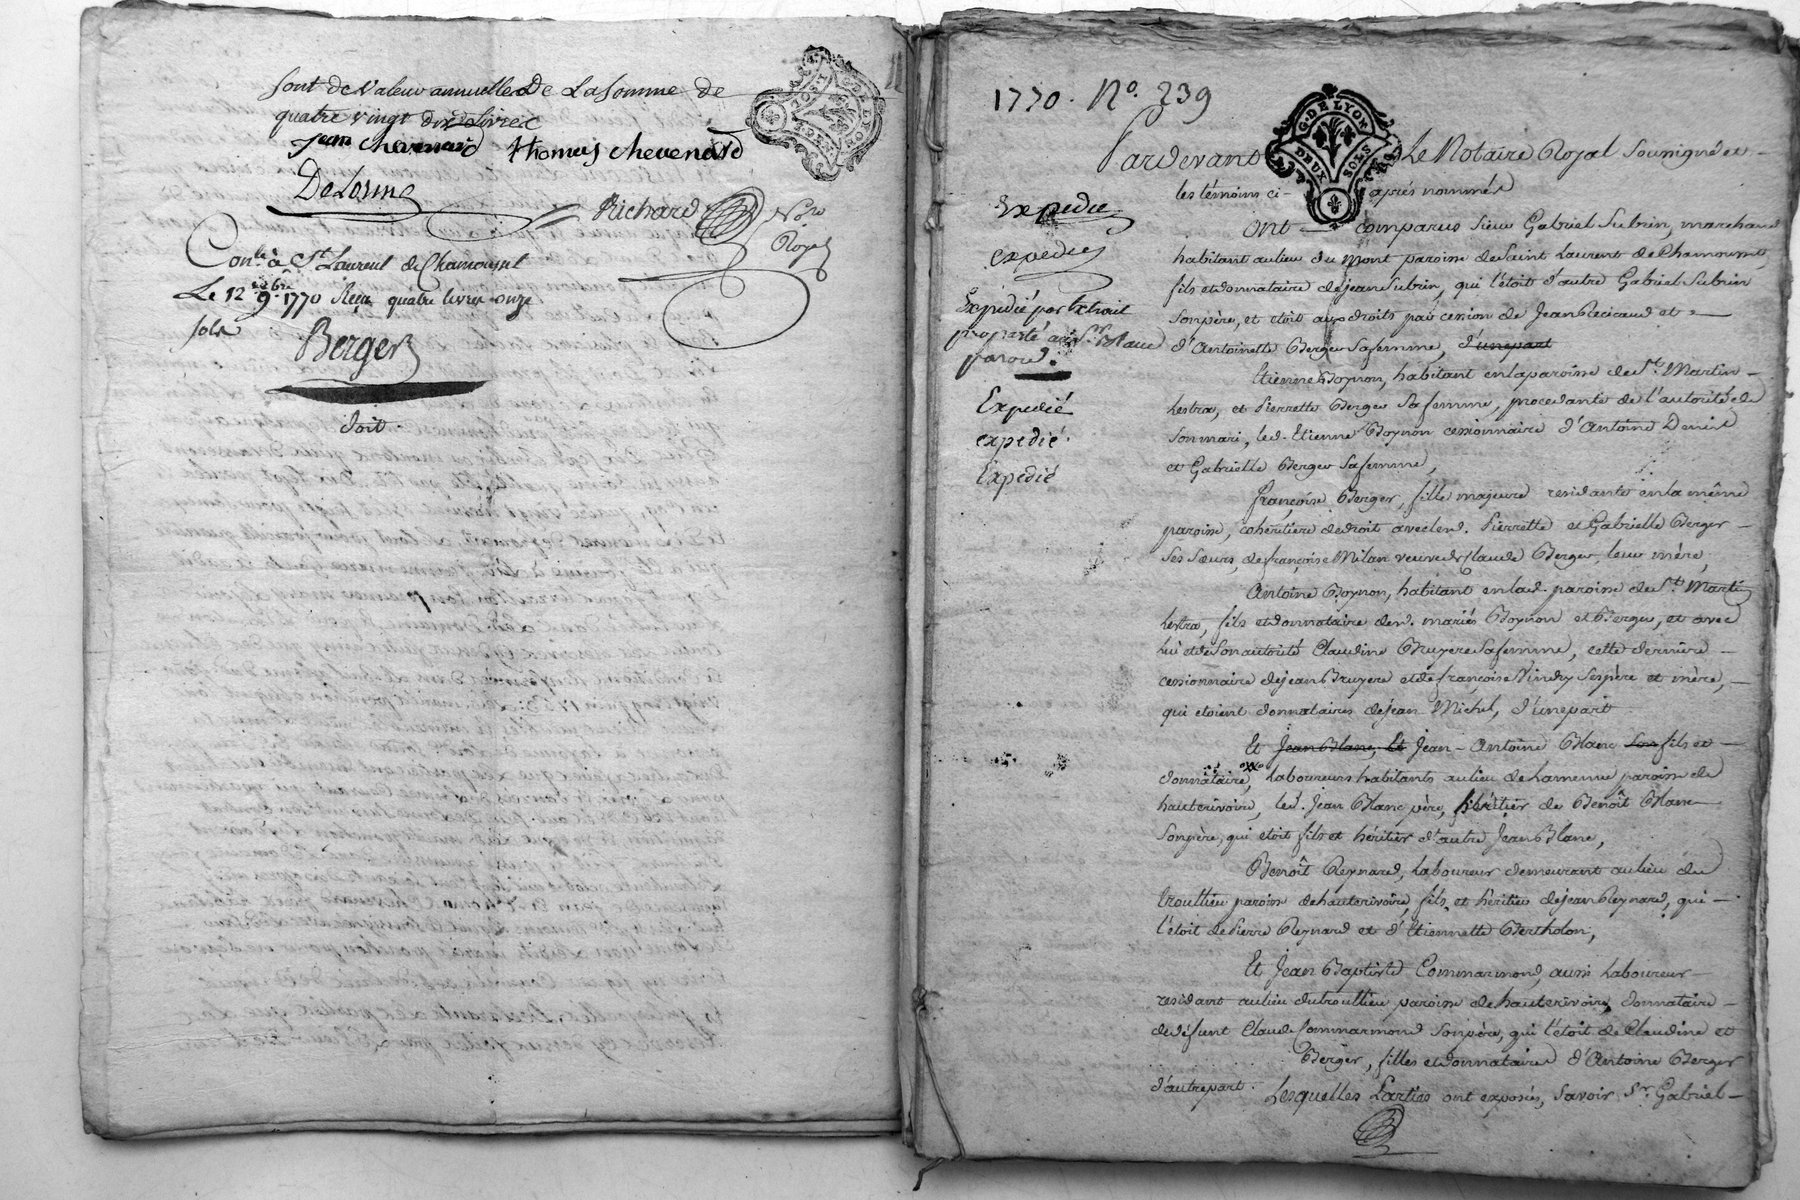 sont de valeur annuelle de La somme de
quatre vingt dix Livres
jean chevenard thomas chevenard
DeLorme
Richard Nre
Royal
Conlé à St Laurent de Chamousset
Le 12 9bre 1770 Reçu quatre livres onze
sols
Berger
doit
G. DE LYON
DEUX SOLS
1770. No. 239
Pardevant Le Notaire Royal soussigné et
les témoins ci- après nommés
Ont comparus sieur Gabriel Subrin, marchand
habitant au lieu du Mont paroisse de Saint Laurent de Chamousset,
fils et donnataire de jean Subrin, qui l'étoit d'autre Gabriel Subrin
son père, et étoit aux droits par cession de Jean et
d'Antoinette Berger sa femme, d'une part
Etienne Boynon, habitant en la paroisse de St. Martin
Lestra, et Pierrette Berger sa femme, procedante de l'autorité de
son mari, led. Etienne Boynon cessionnaire d'Antoine Denis
et Gabrielle Berger sa femme,
françoise Berger, fille majeure residante en la même
paroisse, cohéritiere de droit avec lesd. Pierrette et Gabrielle Berger
ses sœurs, de françoise Milan veuve de Claude Berger, leur mère,
Antoine Boynon, habitant en lad. paroisse de St. Martin
Lestra, fils et donnataire desd. mariés Boynon et Berger, et avec
lui et de son autorité Claudine Bruyere sa femme, cette derniere
cessionnaire de jean Bruyere et de françoise Vindry ses père et mère,
qui etoient donnataires de jean Michel, d'une part
Et Jean Blanc, et Jean-Antoine Blanc son fils et
donnataire, laboureurs habitants au lieu de Lamenue paroisse de
hauterivoire, led. Jean Blanc père, héritier de Benoît Blanc
son père, qui etoit fils et héritier d'autre Jean Blanc,
Benoît Reynard, Laboureur demeurant au lieu du
trouillieu paroisse de hauterivoire, fils et héritier de jean Reynard, qui
l'étoit de Pierre Reynard et d'Etiennette Bertholon,
Et Jean Baptiste Commarmond, aussi Laboureur
residant au lieu du trouillieu paroisse de hauterivoire, donnataire
de défunt Claude Commarmond son père, qui l'étoit de Claudine et
Berger, filles et donnataires d'Antoine Berger
d'autre part. Lesquelles Parties ont exposés, savoir Sr. Gabriel
Expediée
expediée
Expédié par Extrait
Expedié
expedié.
Expedié